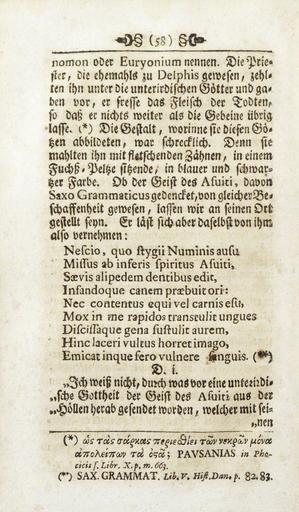 (58)
nomon oder Euryonium nennen. Die Prie-
ster, die ehemahls zu Delphis gewesen, zehl-
ten ihn unter die unterirdischen Götter und ga-
ben vor, er fresse das Fleisch der Todten,
so daß er nichts weiter als die Gebeine übrig
lasse. (*) Die Gestalt, worinne sie diesen Gö-
tzen abbildeten, war schrecklich. Denn sie
mahlten ihn mit fletschenden Zähnen, in einem
Fuchs-Peltze sitzende, in blauer und schwar-
tzer Farbe. Ob der Geist des Asuiti, davon
Saxo Grammaticus gedencket, von gleicher Be-
schaffenheit gewesen, lassen wir an seinen Ort
gestellt seyn. Er läst sich aber daselbst von ihm
also vernehmen:
Nescio, quo stygii Numinis ausu
Missus ab inferis spiritus Asuiti,
Sævis alipedem dentibus edit,
Infandoque canem præbuit ori:
Nec contentus equi vel carnis esu,
Mox in me rapidos transtulit ungues
Discissaque gena sustulit aurem,
Hinc laceri vultus horret imago,
Emicat inque fero vulnere sanguis. (**)
D. i.
„Ich weiß nicht, durch was vor eine unterirdi-
„sche Gottheit der Geist des Asuiti aus der
„Höllen herab gesendet worden, welcher mit sei-
„nen
(*) ὡς τὰς σάρκας περιεσθίει τῶν νεκρῶν μόνα
ἀπολείπων τὰ ὀστᾶ; PAVSANIAS in Pho-
cicis s. Libr. X. p. m. 663.
(**) SAX. GRAMMAT. Lib. V. Hist. Dan. p. 82. 83.